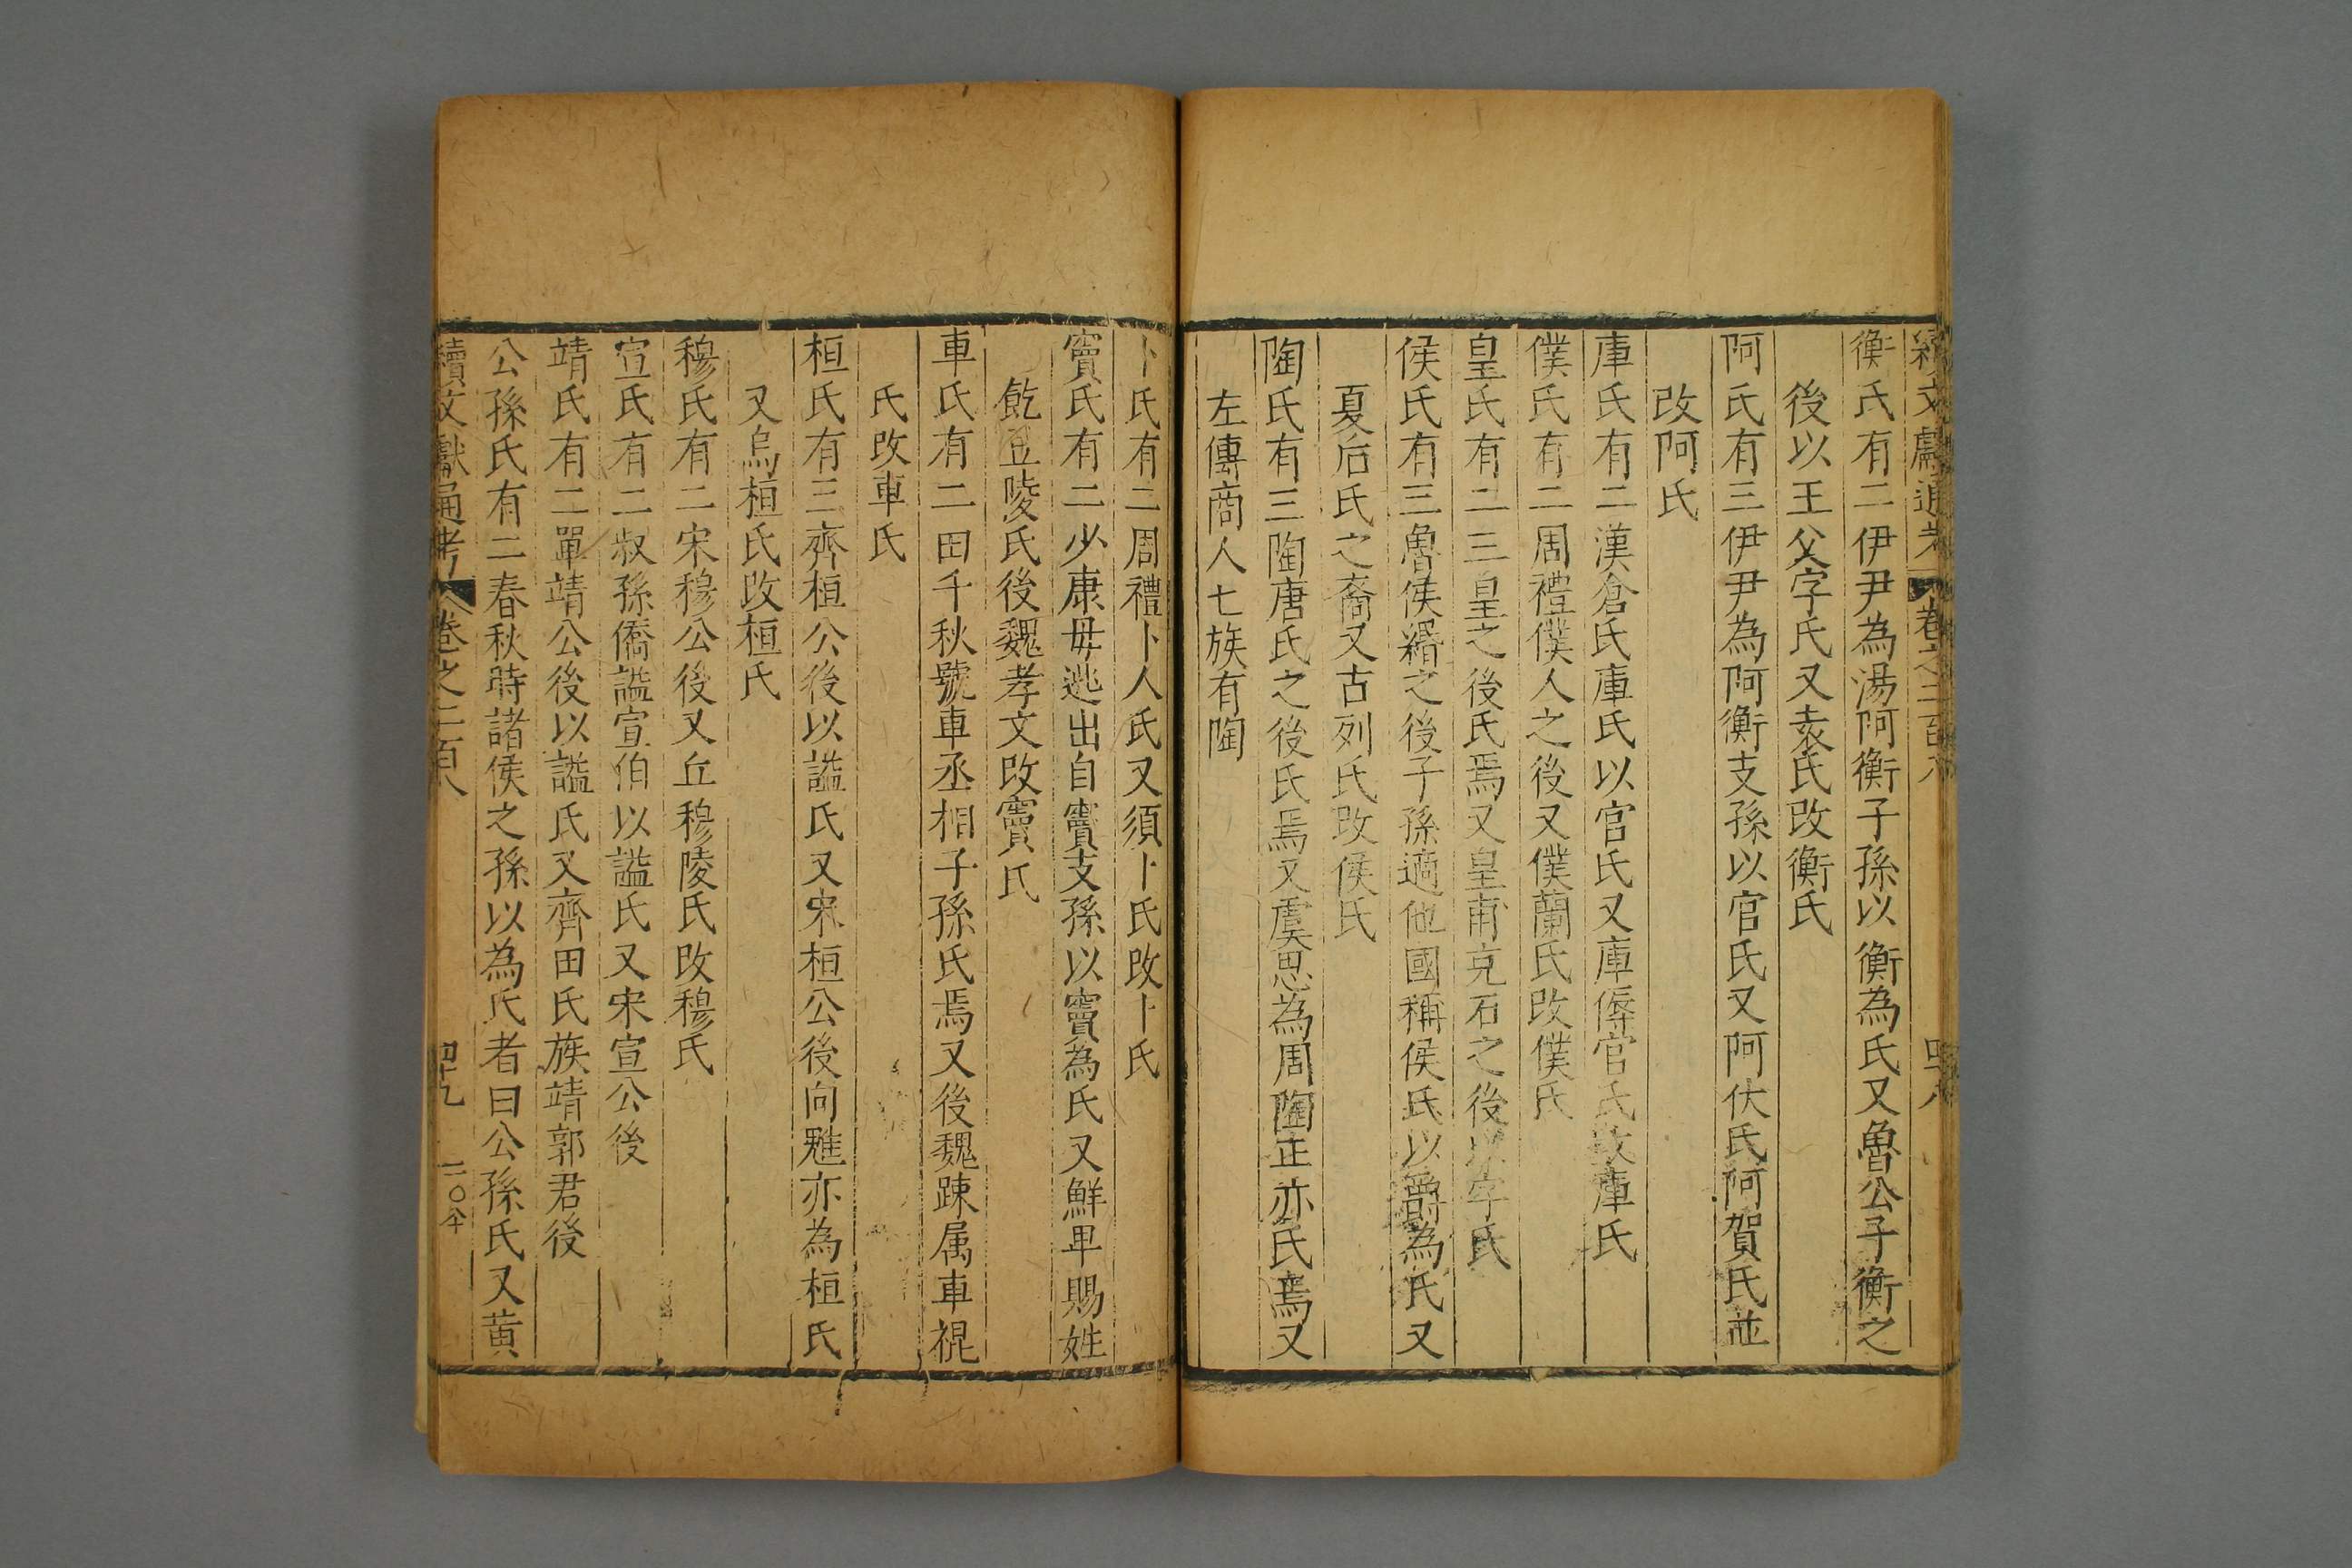 續文獻通考 卷之二百八 四十八
衡氏有二伊尹為湯阿衡子孫以衡為氏又魯公子衡之
後以王父字氏又袁氏改衡氏
阿氏有三伊尹為阿衡支孫以官氏又阿伏氏阿賀氏並
改阿氏
庫氏有二漢倉氏庫氏以官氏又庫傉官氏改庫氏
僕氏有二周禮僕人之後又僕蘭氏改僕氏
皇氏有二三皇之後氏焉又皇甫克石之後以字氏
侯氏有三魯侯緡之後子孫適他國稱侯氏以爵為氏又
夏后氏之裔又古列氏改侯氏
陶氏有三陶唐氏之後氏焉又虞思為周陶正亦氏焉又
左傳商人七族有陶
卜氏有二周禮卜人氏又須卜氏改卜氏
竇氏有二少康母逃出自竇支孫以竇為氏又鮮卑賜姓
紇豆陵氏後魏孝文改竇氏
車氏有二田千秋號車丞相子孫氏焉又後魏疎属車裩
氏改車氏
桓氏有三齊桓公後以謚氏又宋桓公後向魋亦為桓氏
又烏桓氏改桓氏
穆氏有二宋穆公後又丘穆陵氏改穆氏
宣氏有二叔孫僑謚宣伯以謚氏又宋宣公後
靖氏有二單靖公後以謚氏又齊田氏族靖郭君後
公孫氏有二春秋時諸侯之孫以為氏者曰公孫氏又黄
續文獻通考 卷之二百八 四十九 二〇